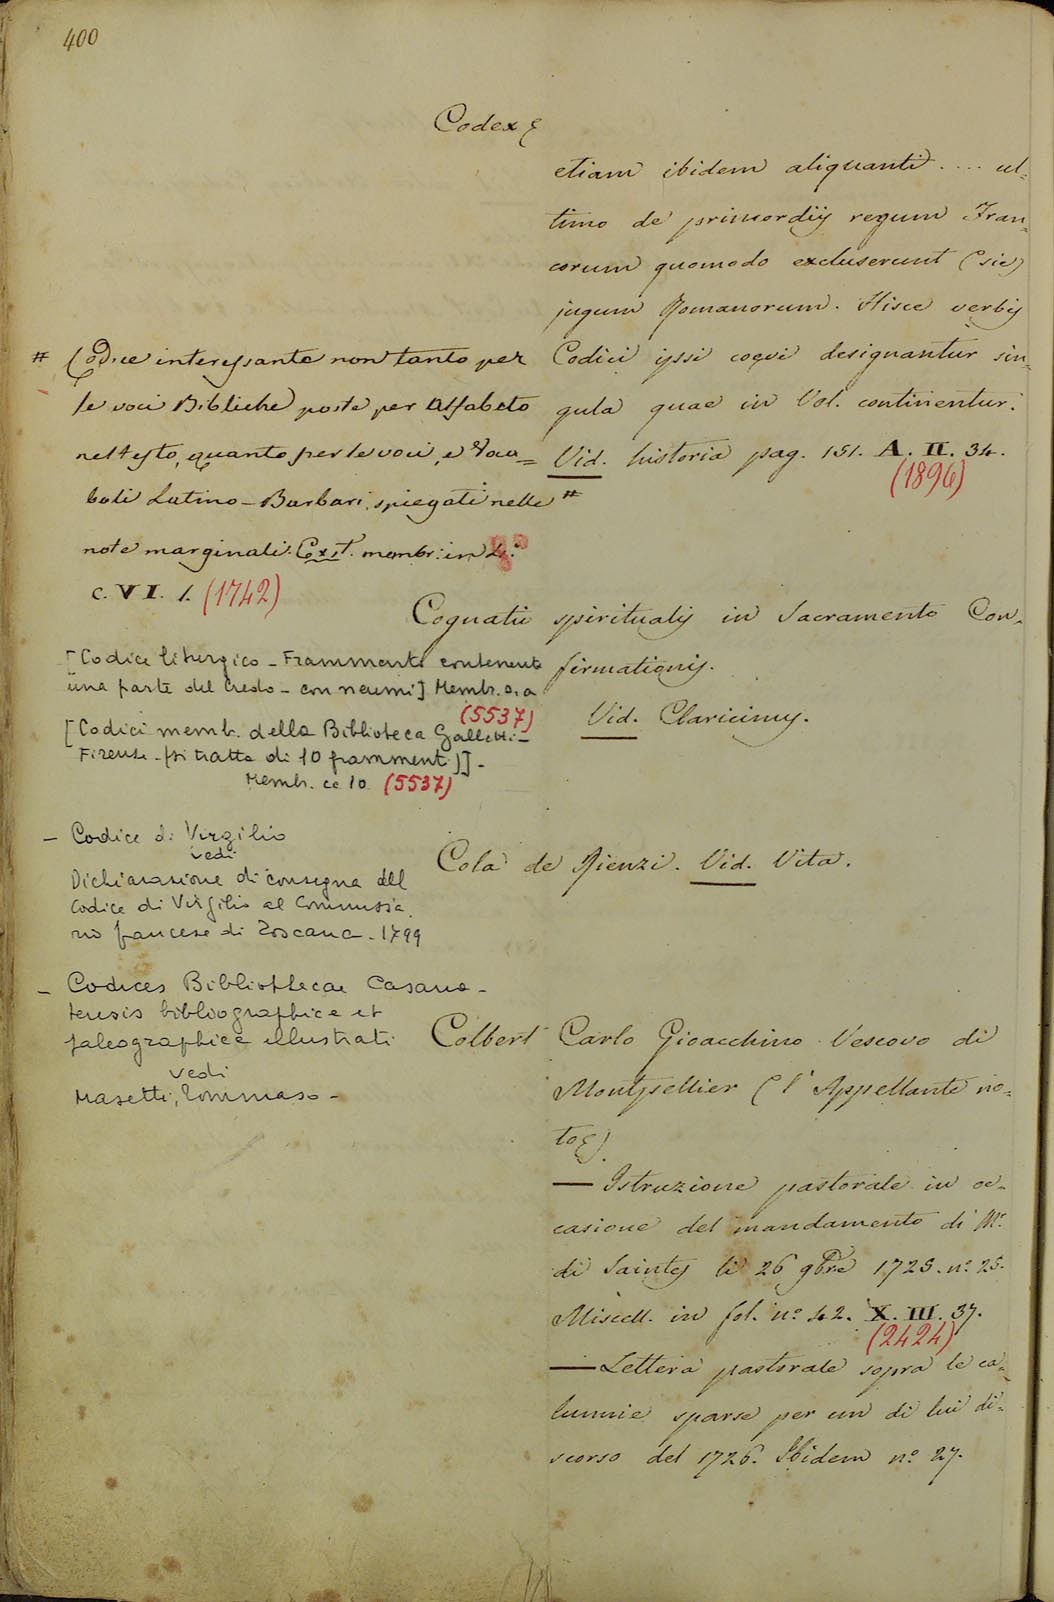 400
Codex
etiam ibidem aliquanti .... ul=
timo de primordijs regum Fran=
corum quomodo excluserunt (sic)
jugum Romanorum. Hisce verbis
Codici ipsi coevi designantur sin=
gula quae in Vol. continentur.
Vid. historia pag. 151. A. II. 34.
(1896)
#
# Codice interessante non tanto per
le voci Bibliche poste per Alfabeto
nel testo, quanto per le voci, e Voca=
boli Latino-Barbari, spiegati nelle
note marginali. Cod. membr: in 4.°
C. VI. 1. (1742)
[Codice liturgico - Frammento contenente
una parte del Credo - con neumi] Membr.
(5537)
[Codici memb. della Biblioteca Galletti -
Firenze - (si tratta di 10 frammenti)] -
Membr. cc 10 (5537)
- Codice di Virgilio
vedi
Dichiarazione di consegna del
Codice di Virgilio al Commissa
rio francese di Toscana - 1799
- Codices Bibliothecae Casana-
tensis bibliographice et
paleographice illustrati
vedi
Masetti, Tommaso -
Cognatio spiritualis in Sacramento Con=
firmationis.
Vid. Claricimus.
Cola de Rienzi. Vid. Vita.
Colbert Carlo Gioacchino Vescovo di
Montpellier (l'Appellante no=
to).
— Istruzione pastorale in oc=
casione del mandamento di Mr.
di Saintes li 26 9bre 1725. n.° 25.
Miscell. in fol. n.° 42. X. III. 37.
(2424)
— Lettera pastorale sopra le ca=
lunnie sparse per un di lui di=
scorso del 1726. Ibidem n.° 27.